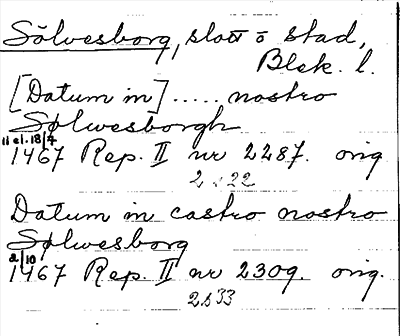 Sölvesborg, slott o stad,
Blek. l.
[Datum in] ..... nostro
Sølwesborgh
11 el. 18/4
1467 Rep. II nr 2287. orig
Datum in castro nostro
Sølwesborg
2/10
1467 Rep. II nr 2309. orig.
2533